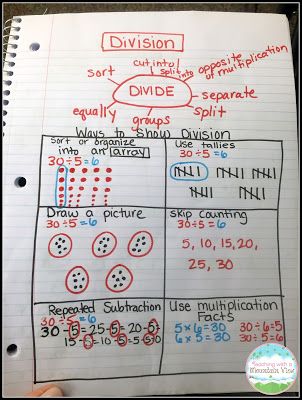 Division
cut into
sort
split into
opposite of
multiplication
DIVIDE
separate
equally
groups
split
Ways to Show Division
Sort or organize
into an array
30÷5=6
Use tallies
30÷5=6
Draw a picture
30÷5=6
Skip counting
30÷5=6
5, 10, 15, 20,
25, 30
Repeated Subtraction
30÷5=6
30-5=25-5=20-5=
15-5=10-5=5-5=0
Use multiplication
Facts
5×6=30 30÷6=5
6×5=30 30÷5=6
Teaching with a
Mountain View